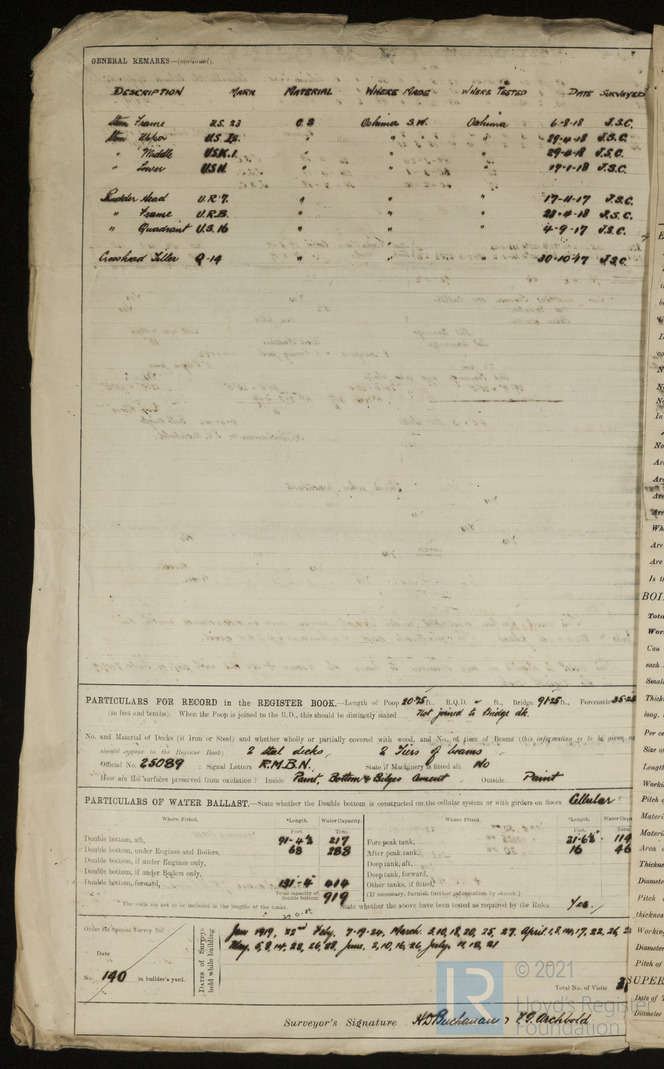 GENERAL REMARKS—(continued).
DESCRIPTION MARK MATERIAL WHERE MADE WHERE TESTED DATE SURVEYED
Stem Frame U.S. 23 C.S Oshima S.W. Oshima 6-8-18 J.S.C.
Stem Upper U.S. " " " 29-4-18 J.S.C.
" Middle USK.1. " " " 29-4-18 J.S.C.
" Lower USH. " " " 17-1-18 J.S.C.
Rudder Head U.R.7. " " " 17-11-17 J.S.C.
" Frame U.R.B. " " " 23-4-18 J.S.C.
" Quadrant U.S. 16 " " " 4-9-17 J.S.C.
Crosshead Tiller Q-14 " " " 30-10-17 J.S.C.
PARTICULARS FOR RECORD in the REGISTER BOOK.—Length of Poop 20·75 ft., R.Q.D. - ft., Bridge 98·25 ft., Forecastle 35·25
(in feet and tenths). When the Poop is joined to the B.D., this should be distinctly stated Not joined to Bridge dk.
No. and Material of Decks (if Iron or Steel) and whether wholly or partially covered with wood, and No. of tiers of Beams (this information is to be given as
should appear in the Register Book) 2 steel decks, 2 Tiers of beams
Official No. 25089 ; Signal Letters R.M.B.N. State if Machinery is fitted aft No
How are the surfaces preserved from oxidation? Inside Paint, Bottom & Bilges Cement Outside Paint
PARTICULARS OF WATER BALLAST.—State whether the Double bottom is constructed on the cellular system or with girders on floors Cellular
Where Fitted. *Length. Water Capacity. Where Fitted. *Length. Water Capa
Feet. Tons. Feet. Tons
Double bottom, aft, 91-4½ 217 Fore peak tank, 21-6½ 114
Double bottom, under Engines and Boilers, 68 288 After peak tank, 16 46
Double bottom, if under Engines only, Deep tank, aft,
Double bottom, if under Boilers only, Deep tank, forward,
Double bottom, forward, 131-4 414 Other tanks, if fitted,
Total capacity of double bottom 919 (If necessary, furnish further information by sketch.)
* The wells are not to be included in the lengths of the tanks. State whether the above have been tested as required by the Rules Yes.
Order for Special Survey No.
Date
No. 140 in builder's yard.
Dates of Surveys held while building
Jan 1919, 22nd Feby. 7-19-24, March. 3, 10, 18, 20, 25, 27. April 1, 8, 14, 17, 22, 26,
May. 5, 8, 14, 22, 26, 28, June. 2, 10, 16, 26, July 18, 21
Total No. of Visits
Surveyor's Signature H.D Buchanan & Archbold
© 2021
Lloyd's Register
Foundation
LR
BOI
SUPER